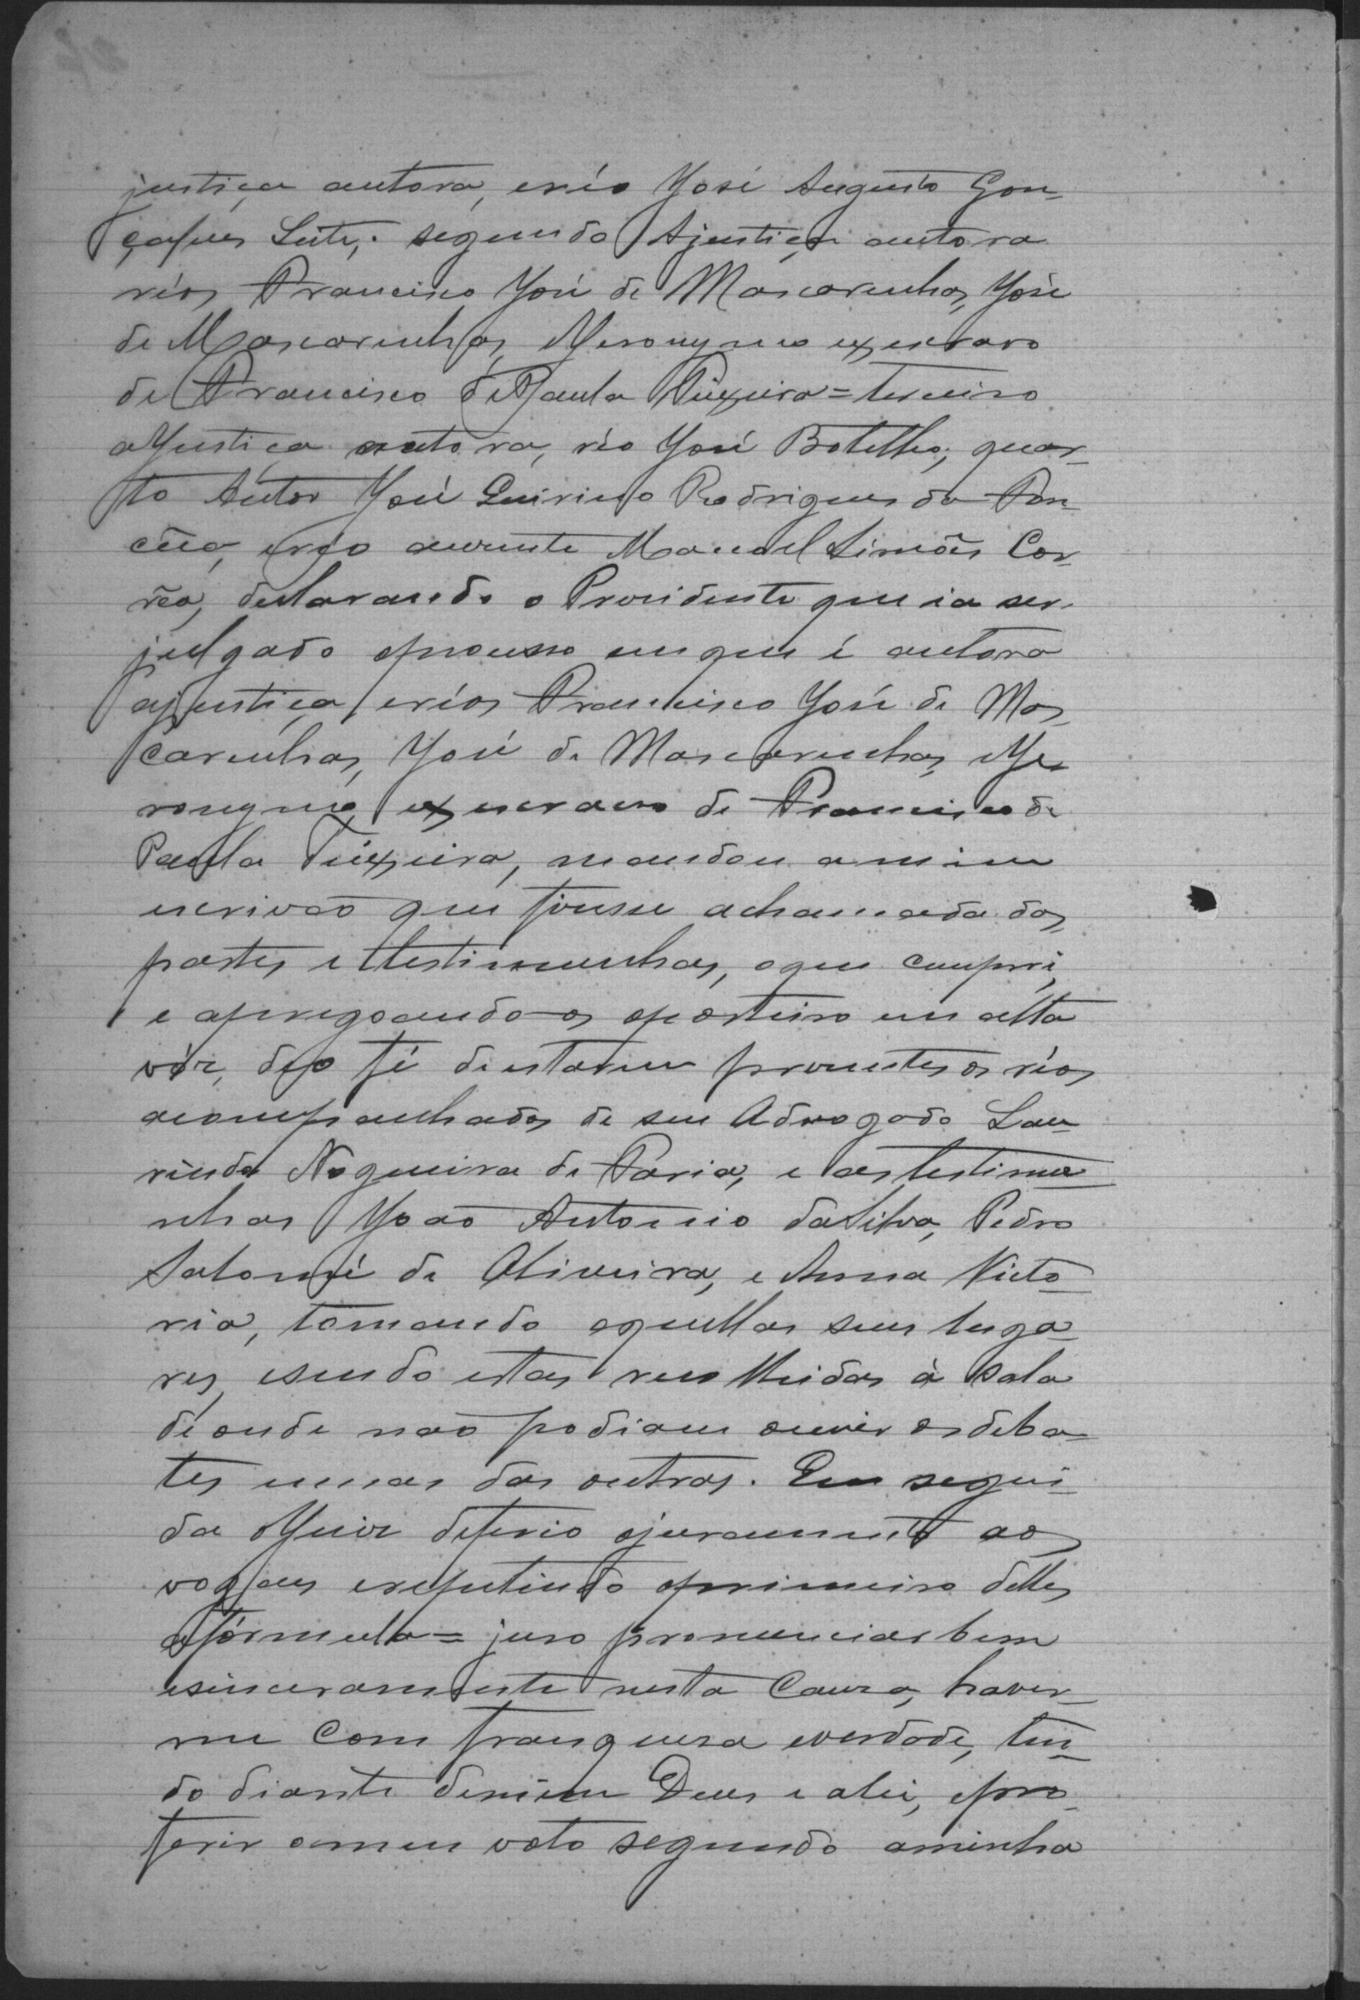 justiça autora, eréo José Augusto Gon-
çalves Leite; segundo Ajustiça autora
réos Francisco José de Mascarenhas, José
de Mascarenhas, Jeronymo ex escravo
de Francisco de Paula Teixeira = terceiro
aJustiça autora, réo José Botelho; quar-
to Autor José Quirino Rodrigues da
eréo auzente Manoel Simões Cor-
rêa, declarando o Presidente que ia ser
julgado oprocesso emque é autora
ajustiça, eréos Francisco José de Mas-
carenhas, José de Mascarenhas, Je-
ronymo, ex escravo de Francisco de
Paula Teixeira, mandou amim
escrivão que fisesse achamada das
partes e testimunhas, oque cumpri,
e apregoando-os oporteiro em alta
vóz, deo fé deestarem presentes os réos
acompanhados de seu Advogado Lau-
rindo Nogueira de Faria, e astestimu-
nhas João Antonio daSilva, Pedro
Salomé de Oliveira, e Anna Victo-
ria, tomando aquelles seus luga-
res, esendo estas recolhidas á sala
deonde não podiam ouvir osdeba-
tes umas das outras. Em segui-
da oJuiz deferio ojuramento aos
vogaes erepetindo oprimeiro delles
afórmula = juro pronunciar bem
esinceramente nesta Causa, haver-
me com franquesa everdade, ten-
do diante demim Deus e alei, epro-
ferir omeu voto segundo aminha